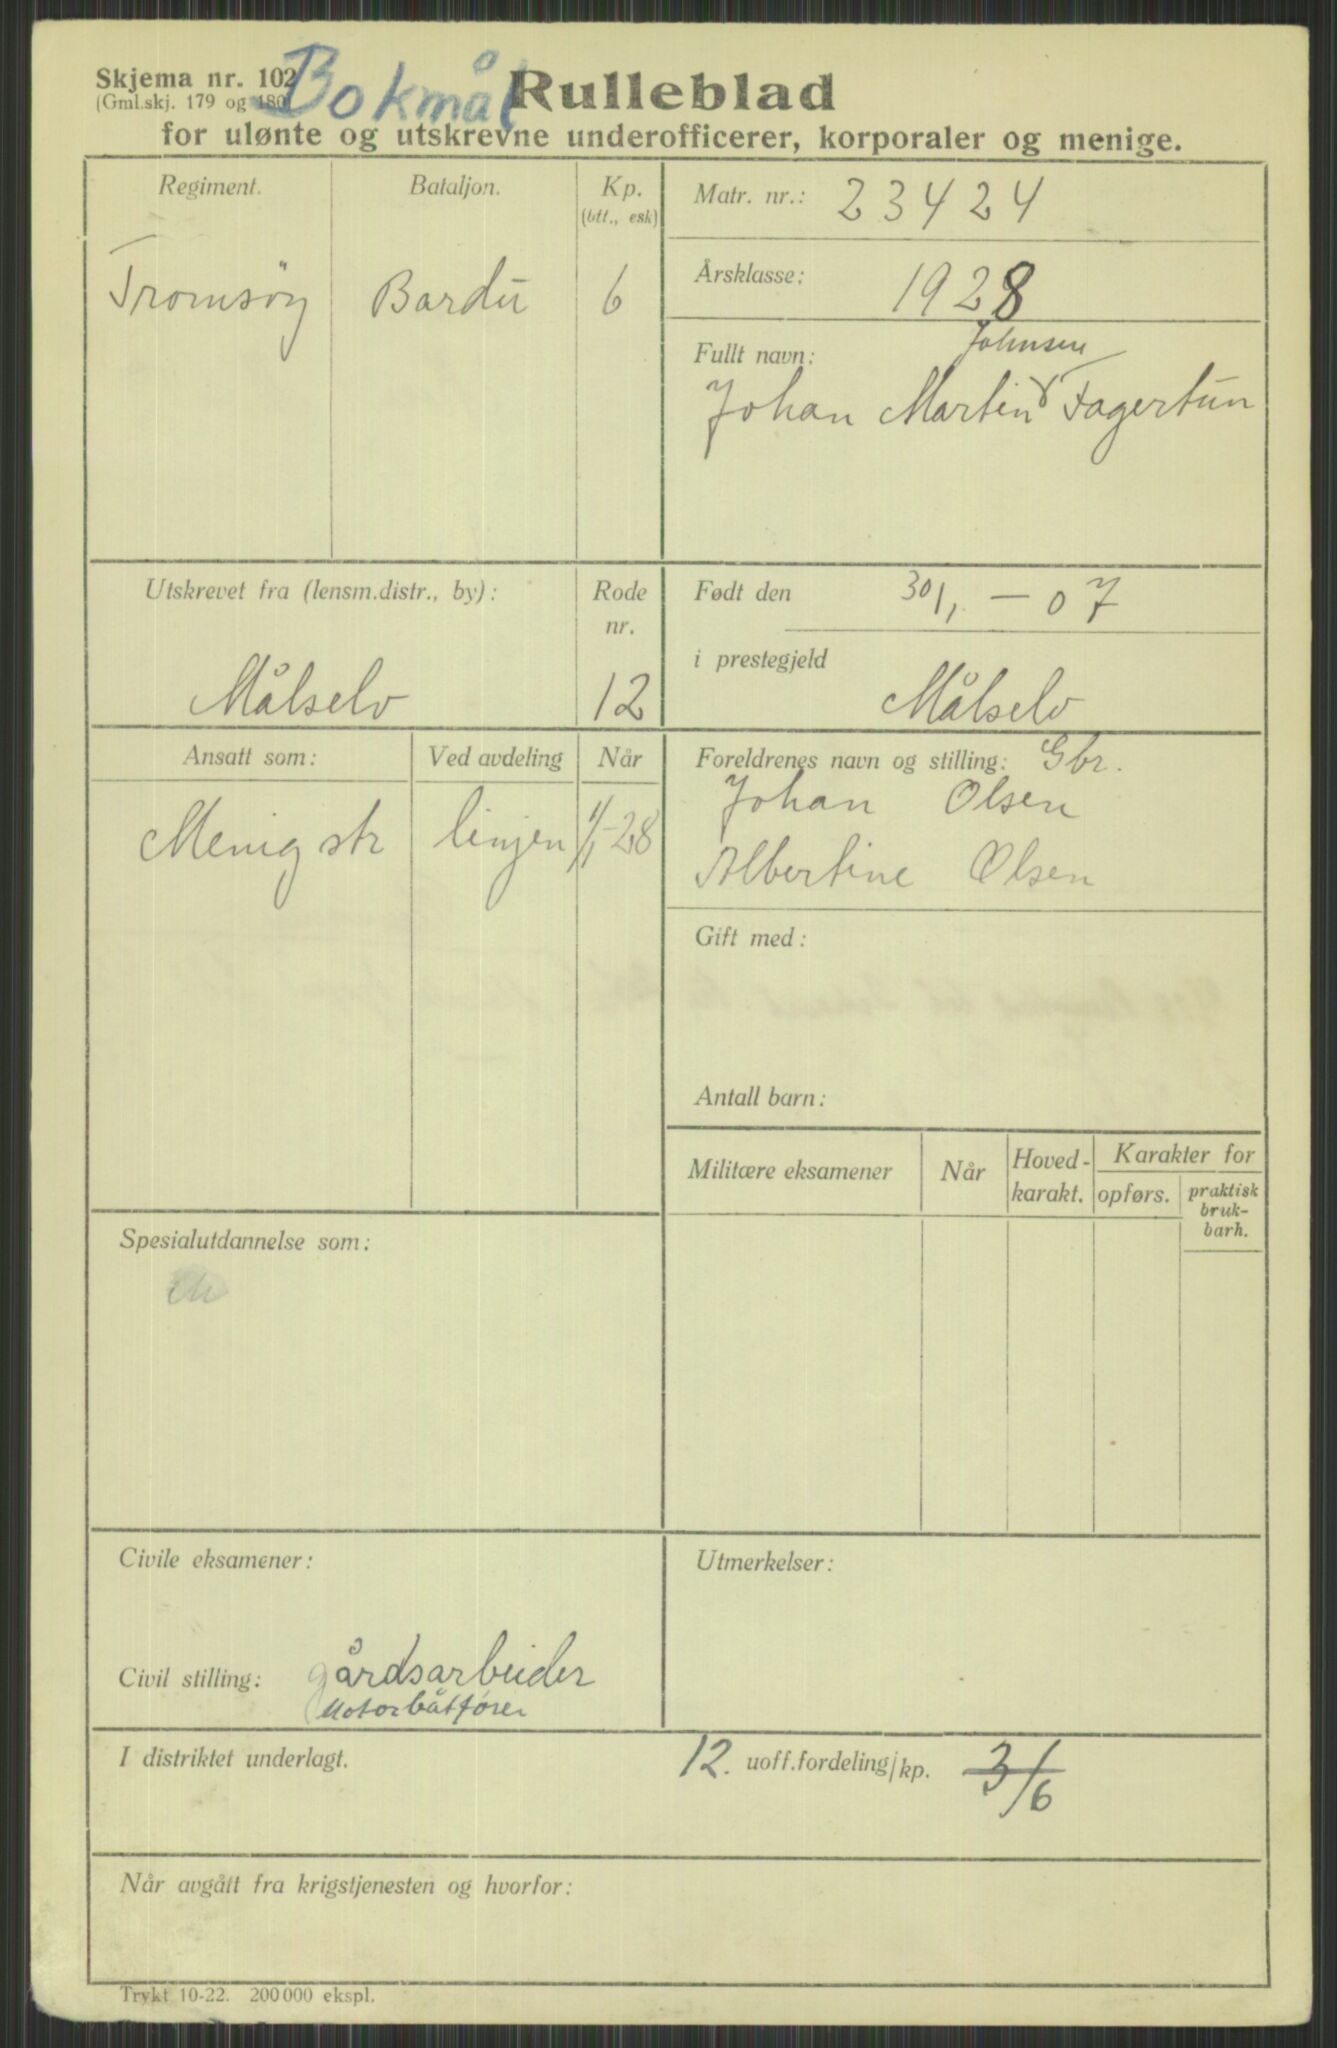 Skjema nr. 102
(Gml.skj. 179 og 180)
Bokmål
Rulleblad
for ulønte og utskrevne underofficerer, korporaler og menige.
Regiment.
Bataljon.
Kp.
(btt., esk)
Tromsöy
Bardu
6
Matr. nr.: 23424
Årsklasse: 1928
Johnsen
Fullt navn:
Johan Martin Fagertun
Utskrevet fra (lensm.distr., by):
Rode
nr.
Målselv
12
Født den 30/1 - 07
i prestegjeld
Målselv
Ansatt som:
Ved avdeling
Når
Menig str
linjen
1/1-28
Foreldrenes navn og stilling: Gbr.
Johan Olsen
Albertine Olsen
Gift med:
Antall barn:
Militære eksamener
Når
Hoved-
karakt.
Karakter for
opførs.
praktisk
bruk-
barh.
Spesialutdannelse som:
Civile eksamener:
Utmerkelser:
Civil stilling: gårdsarbeider
Motorbåtfører
I distriktet underlagt.
12. uoff.fordeling/kp. 3/6
Når avgått fra krigstjenesten og hvorfor:
Trykt 10-22. 200 000 ekspl.